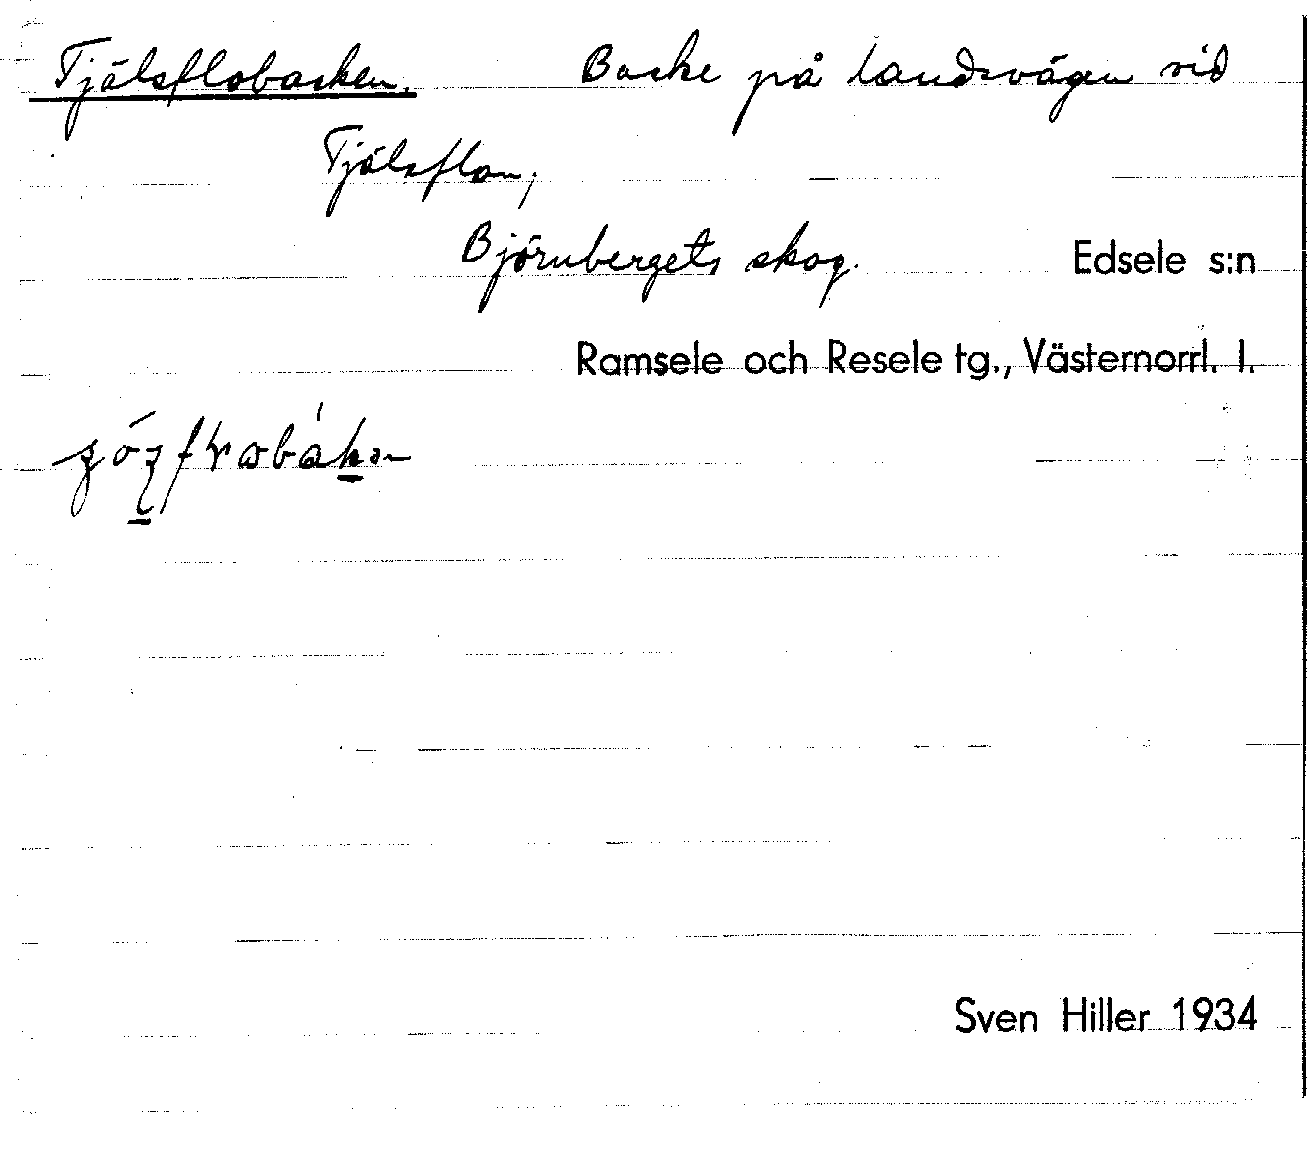 Tjälsflobacken. Backe på landsvägen vid
Tjälsflon,
Björnbergets skog. Edsele s:n
Ramsele och Resele tg., Västernorrl. l.
Sven Hiller 1934